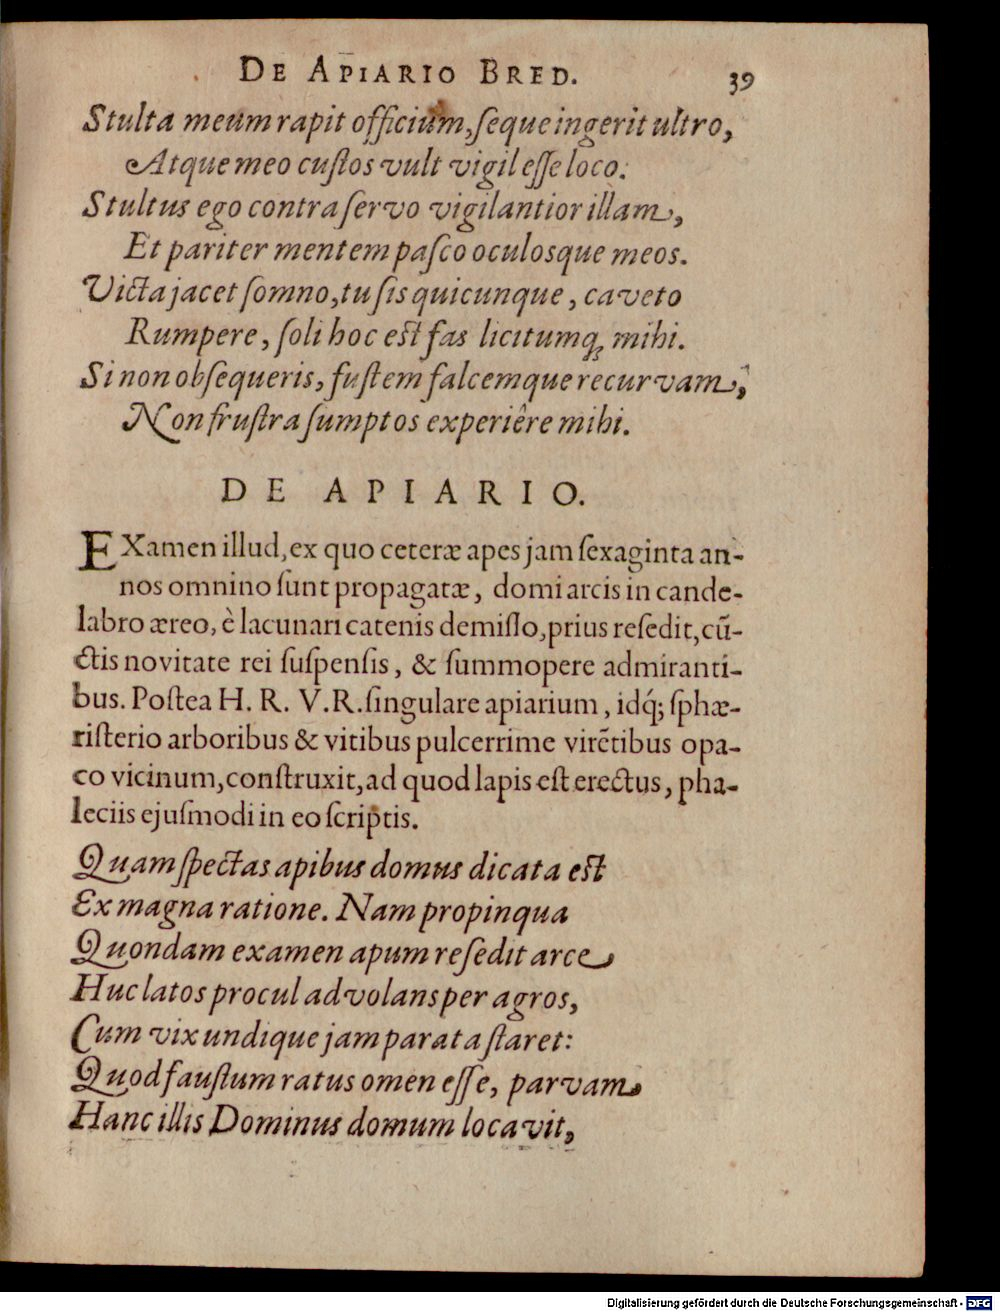 DE APIARIO BRED. 39
Stulta meum rapit officium, seque ingerit ultro,
Atque meo custos vult vigil esse loco.
Stultus ego contra servo vigilantior illam,
Et pariter mentem pasco oculosque meos.
Victa jacet somno, tu sis quicunque, caveto
Rumpere, soli hoc est fas licitumq; mihi.
Si non obsequeris, fustem falcemque recurvam,
Non frustra sumptos experiêre mihi.
DE APIARIO.
EXamen illud, ex quo ceteræ apes jam sexaginta an-
nos omnino sunt propagatæ, domi arcis in cande-
labro æreo, è lacunari catenis demisso, prius resedit, cū-
ctis novitate rei suspensis, & summopere admiranti-
bus. Postea H. R. V. R. singulare apiarium, idq́; sphæ-
risterio arboribus & vitibus pulcerrime virētibus opa-
co vicinum, construxit, ad quod lapis est erectus, pha-
leciis ejusmodi in eo scriptis.
Quam spectas apibus domus dicata est
Ex magna ratione. Nam propinqua
Quondam examen apum resedit arce
Huc latos procul advolans per agros,
Cum vix undique jam parata staret:
Quod faustum ratus omen esse, parvam
Hanc illis Dominus domum locavit,
Digitalisierung gefördert durch die Deutsche Forschungsgemeinschaft - DFG